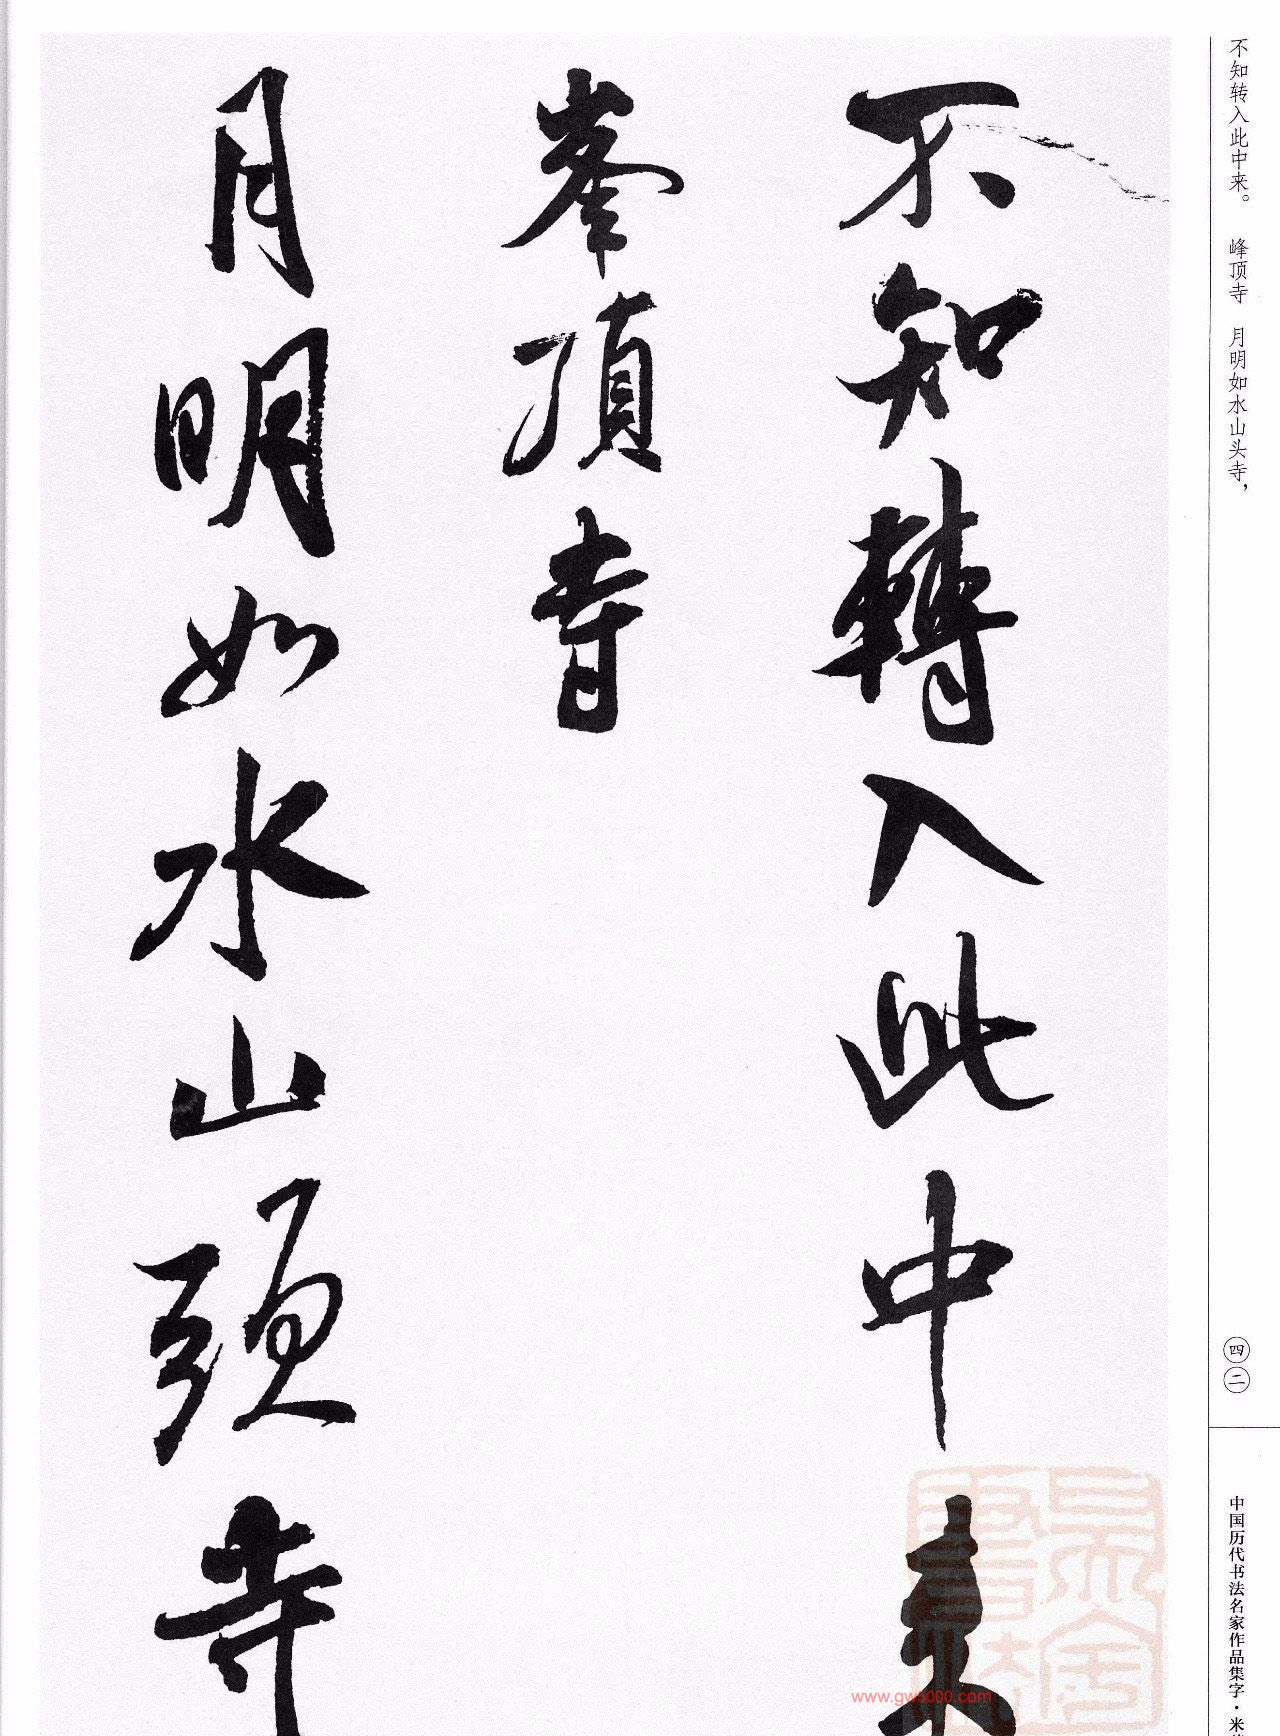 不知转入此中来。 峰顶寺 月明如水山头寺，
四二
中国历代书法名家作品集字·米
不知轉入此中来
峯頂寺
月明如水山頭寺
www.gw5000.com